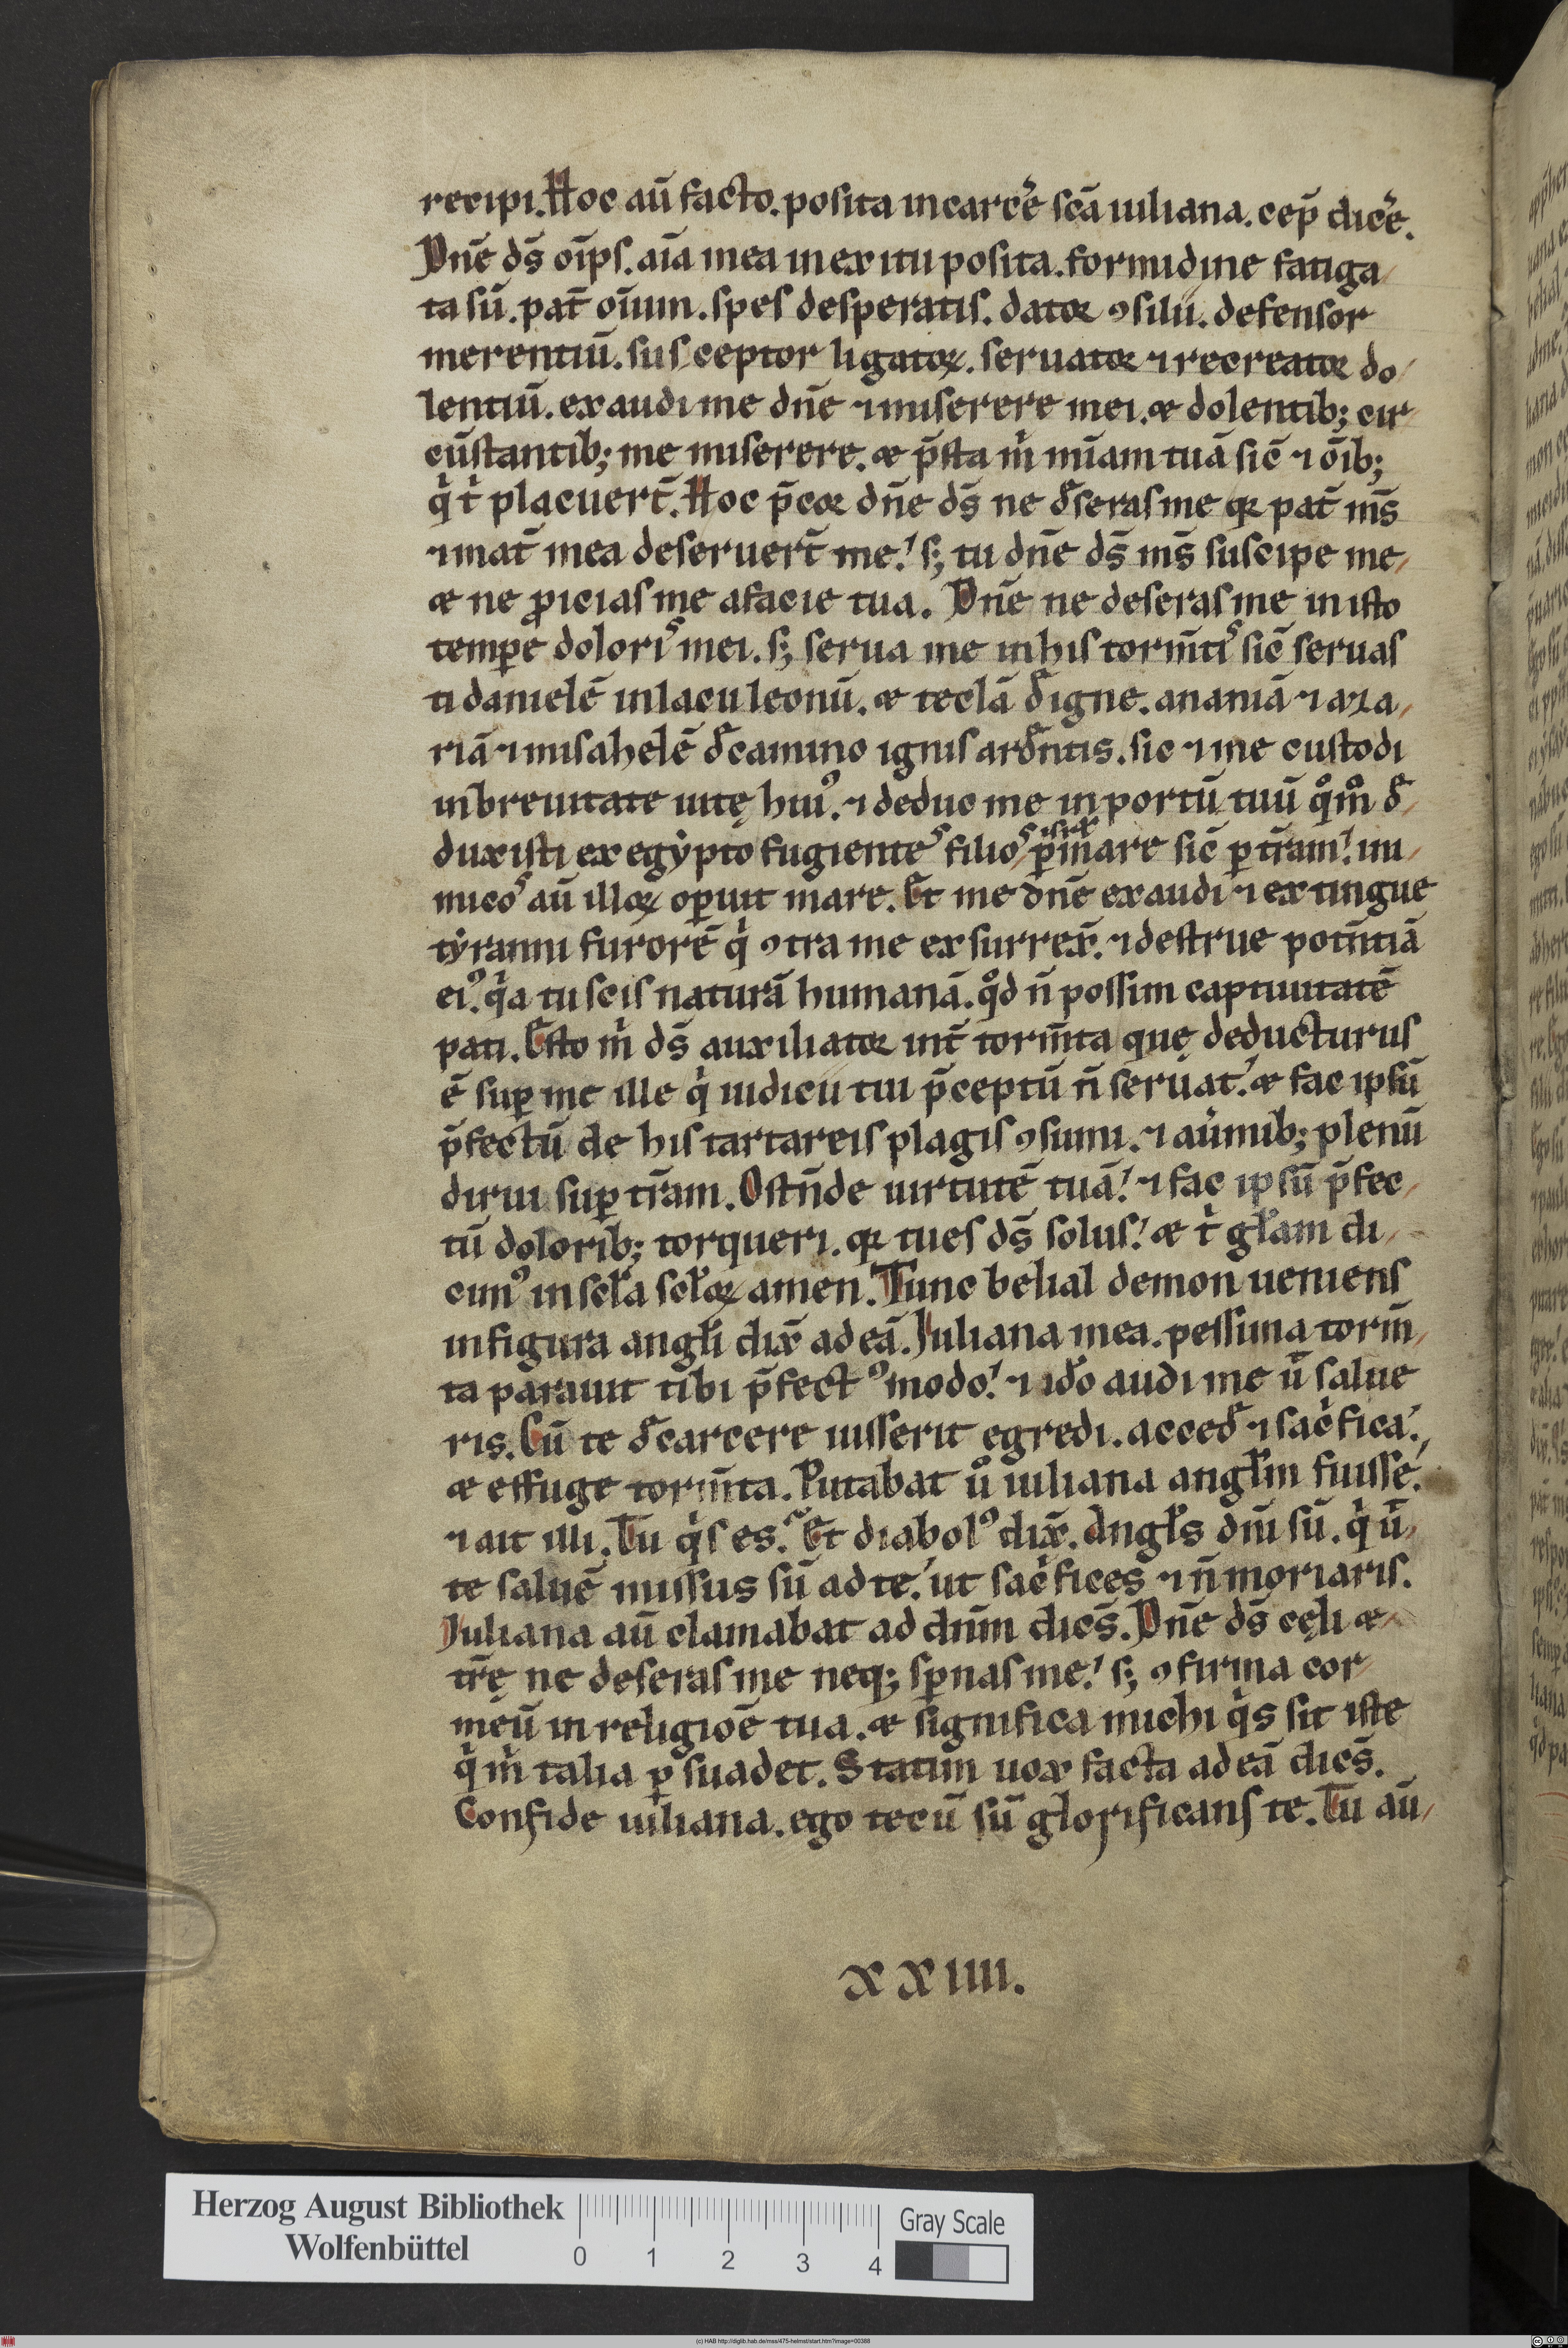 recipi. Hoc aū facto. posita in carc̉e sc̄a iuliana. cep̄ dic̉e.
Dn̄e ds̄ oīps. aīa mea in exitu posita. formidine fatiga
ta sū. pat̄ oīum. spes desperatis. dator ꝯsilii. defensor
merentiū. susceptor ligatoꝝ. seruator ⁊ recreator do
lentiū. exaudi me dn̄e ⁊ miserere mei. & dolentib; cir
cūstantib; me miserere. & p̄sta m̍ mīam tuā sic̄ ⁊ oīb;
q̍ t̍ placuert̄. Hoc p̄cor dn̄e ds̄ ne d̓seras me qꝛ pat̄ ms̄
⁊ mat̄ mea deseruert̄ me! s; tu dn̄e ds̄ ms̄ suscipe me
& ne ꝓicias me a facie tua. Dn̄e ne deseras me in isto
temꝑe doloris mei. s; serua me in his torm̄tis sic̄ seruas
ti danielē in lacu leonū. & teclā d̓ igne. ananiā ⁊ aza
riā ⁊ misahelē d̓ camino ignis ard̓ntis. sic ⁊ me custodi
in breuitate uitę hui⁹. ⁊ deduc me in portū tuū qͦmͦ d̓
duxisti ex egẏpto fugientes filios isrl̄ ꝑ mare sic̄ ꝑ tr̄am! ini
micos aū illoꝝ oꝑuit mare. Et me dn̄e exaudi ⁊ extingue
tẏranni furorē q̍ ꝯtra me exsurrex̄. ⁊ destrue potn̄tiā
ei⁹. q̍a tu scis naturā humanā. qͦd n̄ possim captiuitatē
pati. Esto m̍ ds̄ auxiliator int̄ torm̄ta quę deducturus
ē suꝑ me ille q̍ iudicii tui p̄ceptū n̄ seruat! & fac ipsū
p̄fectū de his tartareis plagis ꝯsumi. ⁊ au̍mib; plenū
dirui suꝑ tr̄am. Ostn̄de uirtutē tuā! ⁊ fac ipsū p̄fec
tū dolorib; torqueri. qꝛ tu es ds̄ solus! & t̍ gl̄am di
cim⁹ in scl̄a scl̄oꝝ amen. Tunc belial demon ueniens
in figura angl̄i dix̄ ad eā. Iuliana mea. pessima torm̄
ta parauit tibi p̄fect⁹ modo! ⁊ id̓o audi me ⁊ salue
ris. Cū te d̓ carcere iusserit egredi. acced̓ ⁊ sac̍fica!
& effuge torm̄ta. Putabat uͦ iuliana angl̄m fuisse.
⁊ ait illi. Tu q̍s es. Et diabol⁹ dix̄. Angl̄s dn̄i sū. q̍ ū
te saluē missus sū ad te! ut sac̍fices ⁊ n̄ moriaris.
Iuliana aū clamabat ad dn̄m dices̄. Dn̄e ds̄ cęli &
tr̄ę ne deseras me neq; sꝑnas me! s; ꝯfirma cor
meū in religiōe tua. & significa michi q̍s sit iste
q̍ m̍ talia ꝑsuadet. Statim uox facta ad eā dices̄.
Confide iuliana. ego tecū sū glorificans te. Tu aū
xxiiii.
Herzog August Bibliothek
Wolfenbüttel
0 1 2 3 4
Gray Scale
(c) HAB http://diglib.hab.de/mss/475-helmst/start.htm?image=00388